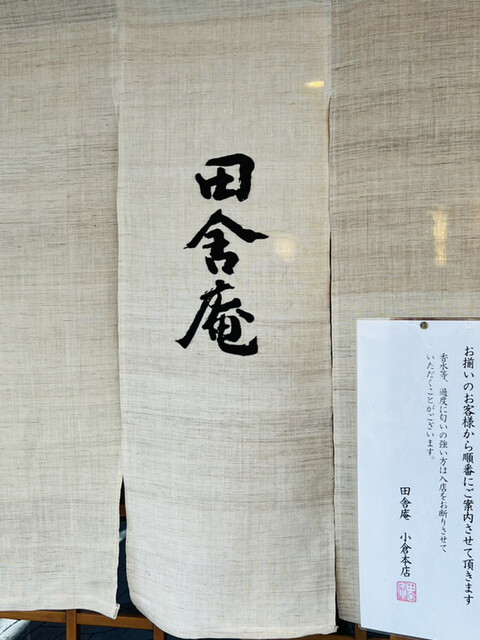 田舎庵
お揃いのお客様から順番にご案内させて頂きます
香水等、過度に匂いの強い方は入店をお断りさせて
いただくことがございます。
田舎庵 小倉本店